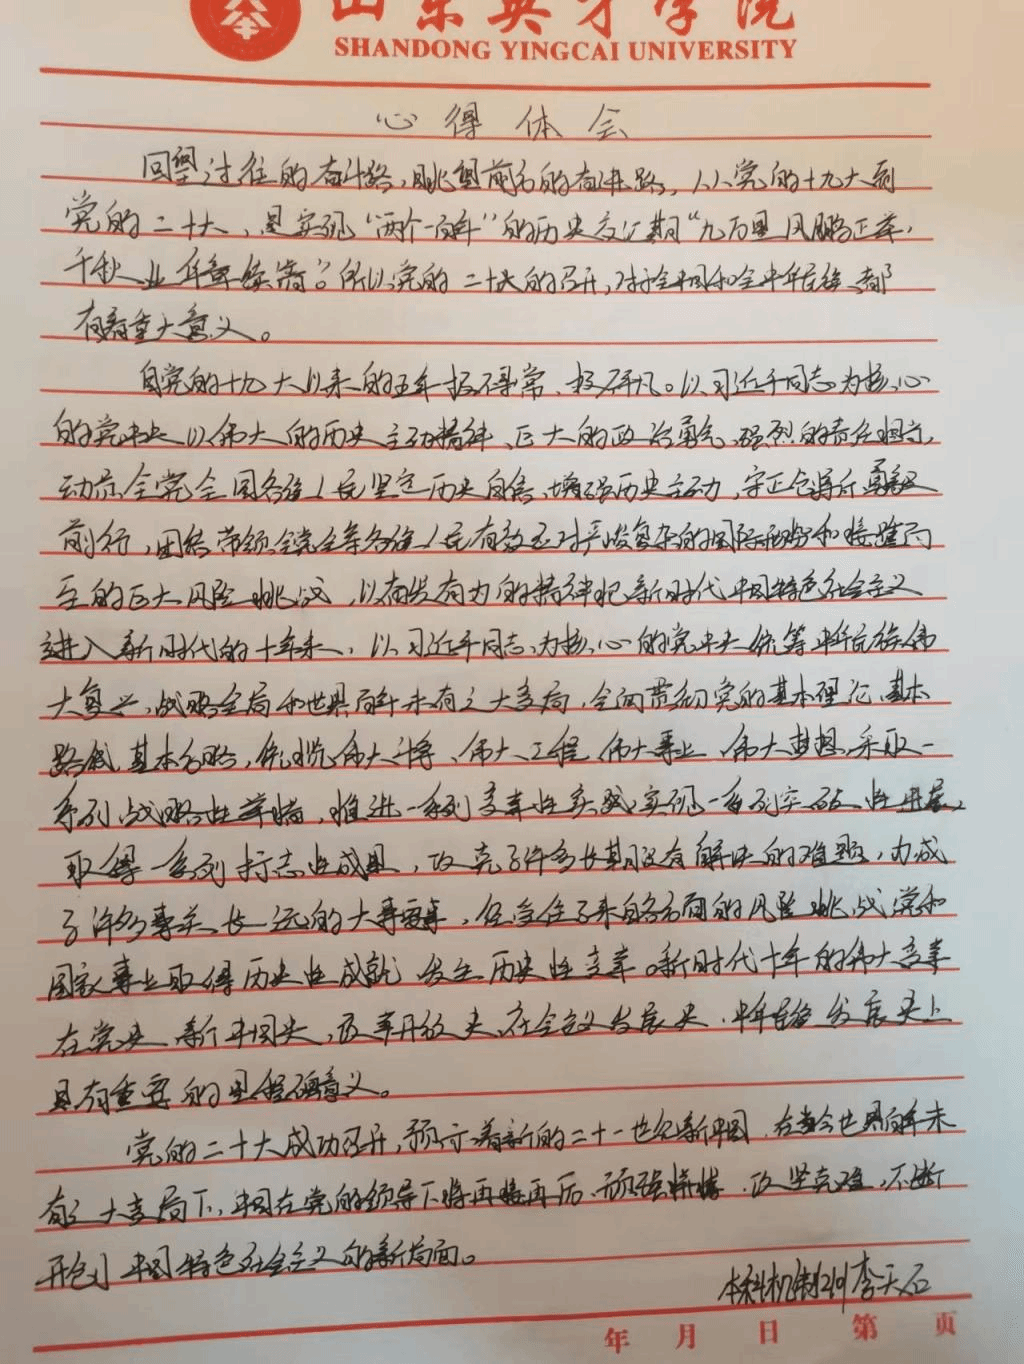 山东英才学院
SHANDONG YINGCAI UNIVERSITY
心得体会
回望过往的奋斗路，眺望前方的奋进路，从党的十九大到
党的二十大，是实现“两个一百年”的历史交汇期“九万里风鹏正举，
千秋业 年 续 。所以党的二十大的召开，对于全中国和全中华民族都
有着重大意义。
自党的十九大以来的五年极不寻常、极不平凡。以习近平同志为核心
的党中央以伟大的历史主动精神、巨大的政治勇气、强烈的责任担当，
动员全党全国各族人民坚定历史自信、增强历史主动，守正创新 勇毅
前行，团结带领全党全军各族人民有效应对严峻复杂的国际形势和接踵而
至的巨大风险挑战，以奋发有为的精神把新时代中国特色社会主义
进入新时代的十年来，以习近平同志为核心的党中央统筹中华民族伟
大复兴，战略全局和世界百年未有之大变局，全面贯彻党的基本理论、基本
路线、基本方略，统揽伟大斗争、伟大工程、伟大事业、伟大梦想，采取一
系列战略性举措，推进一系列变革性实践，实现一系列突破性进展，
取得一系列标志性成果，攻克了许多长期没有解决的难题，办成
了许多事关长远的大事要事，经受住了来自各方面的风险挑战，党和
国家事业取得历史性成就、发生历史性变革。新时代十年的伟大变革
在党史、新中国史，改革开放史、社会主义发展史、中华民族发展史上
具有重要的里程碑意义。
党的二十大成功召开，预示着新的二十一世纪新中国，在当今世界百年未
有之大变局下，中国在党的领导下将再接再厉、顽强拼搏、攻坚克难，不断
开创中国特色社会主义的新局面。
本科机制 李天石
年 月 日 第 页